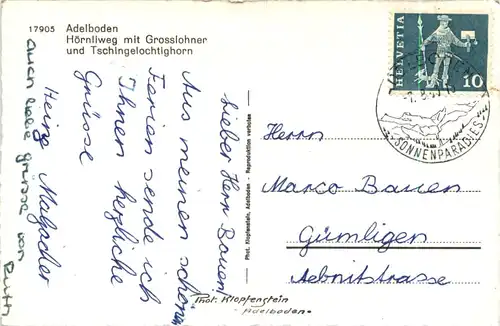 17905 Adelboden
Hörnliweg mit Grosslohner
und Tschingelochtighorn
Lieber Herr Bauen!
Aus meinen schönen
Ferien sende ich
Ihnen herzliche
Grüsse
Heinz
auch liebe Grüsse von
Ruth
Phot. Klopfenstein, Adelboden - Reproduktion verboten
Phot. Klopfenstein
- Adelboden -
HELVETIA
10
SONNENPARADIES
Herrn
Marco Bauen
Gümligen
Aebnitstrasse